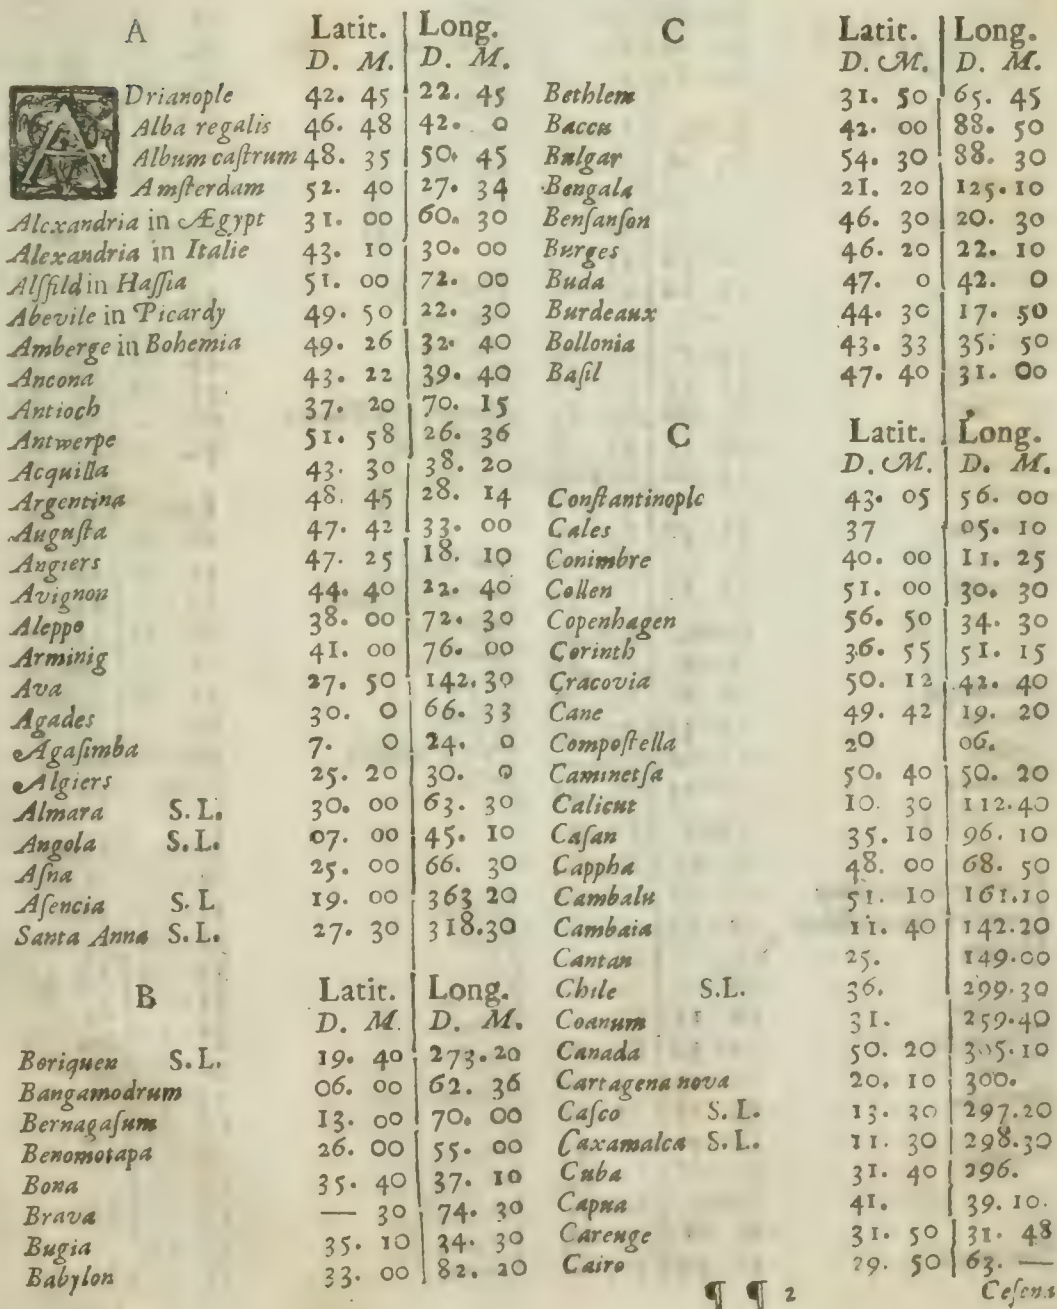 A Latit. Long.
D. M. D. M.
ADrianople 42. 45 22. 45
Alba regalis 46. 48 42. 0
Album caſtrum 48. 35 50. 45
Amſterdam 52. 40 27. 34
Alexandria in Ægypt 31. 00 60. 30
Alexandria in Italie 43. 10 30. 00
Alſfild in Haſſia 51. 00 72. 00
Abevile in Picardy 49. 50 22. 30
Amberge in Bohemia 49. 26 32. 40
Ancona 43. 22 39. 40
Antioch 37. 20 70. 15
Antwerpe 51. 58 26. 36
Acquilla 43. 30 38. 20
Argentina 48. 45 28. 14
Auguſta 47. 42 33. 00
Angiers 47. 25 18. 10
Avignon 44. 40 22. 40
Aleppo 38. 00 72. 30
Arminig 41. 00 76. 00
Ava 27. 50 142. 30
Agades 30. 0 66. 33
Agaſimba 7. 0 24. 0
Algiers 25. 20 30. 0
Almara S. L. 30. 00 63. 30
Angola S. L. 07. 00 45. 10
Aſna 25. 00 66. 30
Aſencia S. L 19. 00 363 20
Santa Anna S. L. 27. 30 318.30
B Latit. Long.
D. M. D. M.
Boriquen S. L. 19. 40 273.20
Bangamodrum 06. 00 62. 36
Bernagaſum 13. 00 70. 00
Benomotapa 26. 00 55. 00
Bona 35. 40 37. 10
Brava — 30 74. 30
Bugia 35. 10 34. 30
Babylon 33. 00 82. 20
C Latit. Long.
D. M. D. M.
Bethlem 31. 50 65. 45
Baccu 42. 00 88. 50
Bulgar 54. 30 88. 30
Bengala 21. 20 125.10
Benſanſon 46. 30 20. 30
Burges 46. 20 22. 10
Buda 47. 0 42. 0
Burdeaux 44. 30 17. 50
Bollonia 43. 33 35. 50
Baſil 47. 40 31. 00
C Latit. Long.
D. M. D. M.
Conſtantinople 43. 05 56. 00
Cales 37 05. 10
Conimbre 40. 00 11. 25
Collen 51. 00 30. 30
Copenhagen 56. 50 34. 30
Corinth 36. 55 51. 15
Cracovia 50. 12 42. 40
Cane 49. 42 19. 20
Compoſtella 20 06.
Caminetſa 50. 40 50. 20
Calicut 10. 30 112.40
Caſan 35. 10 96. 10
Cappha 48. 00 68. 50
Cambalu 51. 10 161.10
Cambaia 11. 40 142.20
Cantan 25. 149.00
Chile S.L. 36. 299.30
Coanum 31. 259.40
Canada 50. 20 305.10
Cartagena nova 20. 10 300.
Caſco S. L. 13. 30 297.20
Caxamalca S. L. 11. 30 298.30
Cuba 31. 40 296.
Capua 41. 39. 10.
Carenge 31. 50 31. 48
Cairo 29. 50 63. —
¶ ¶ 2 Ceſena